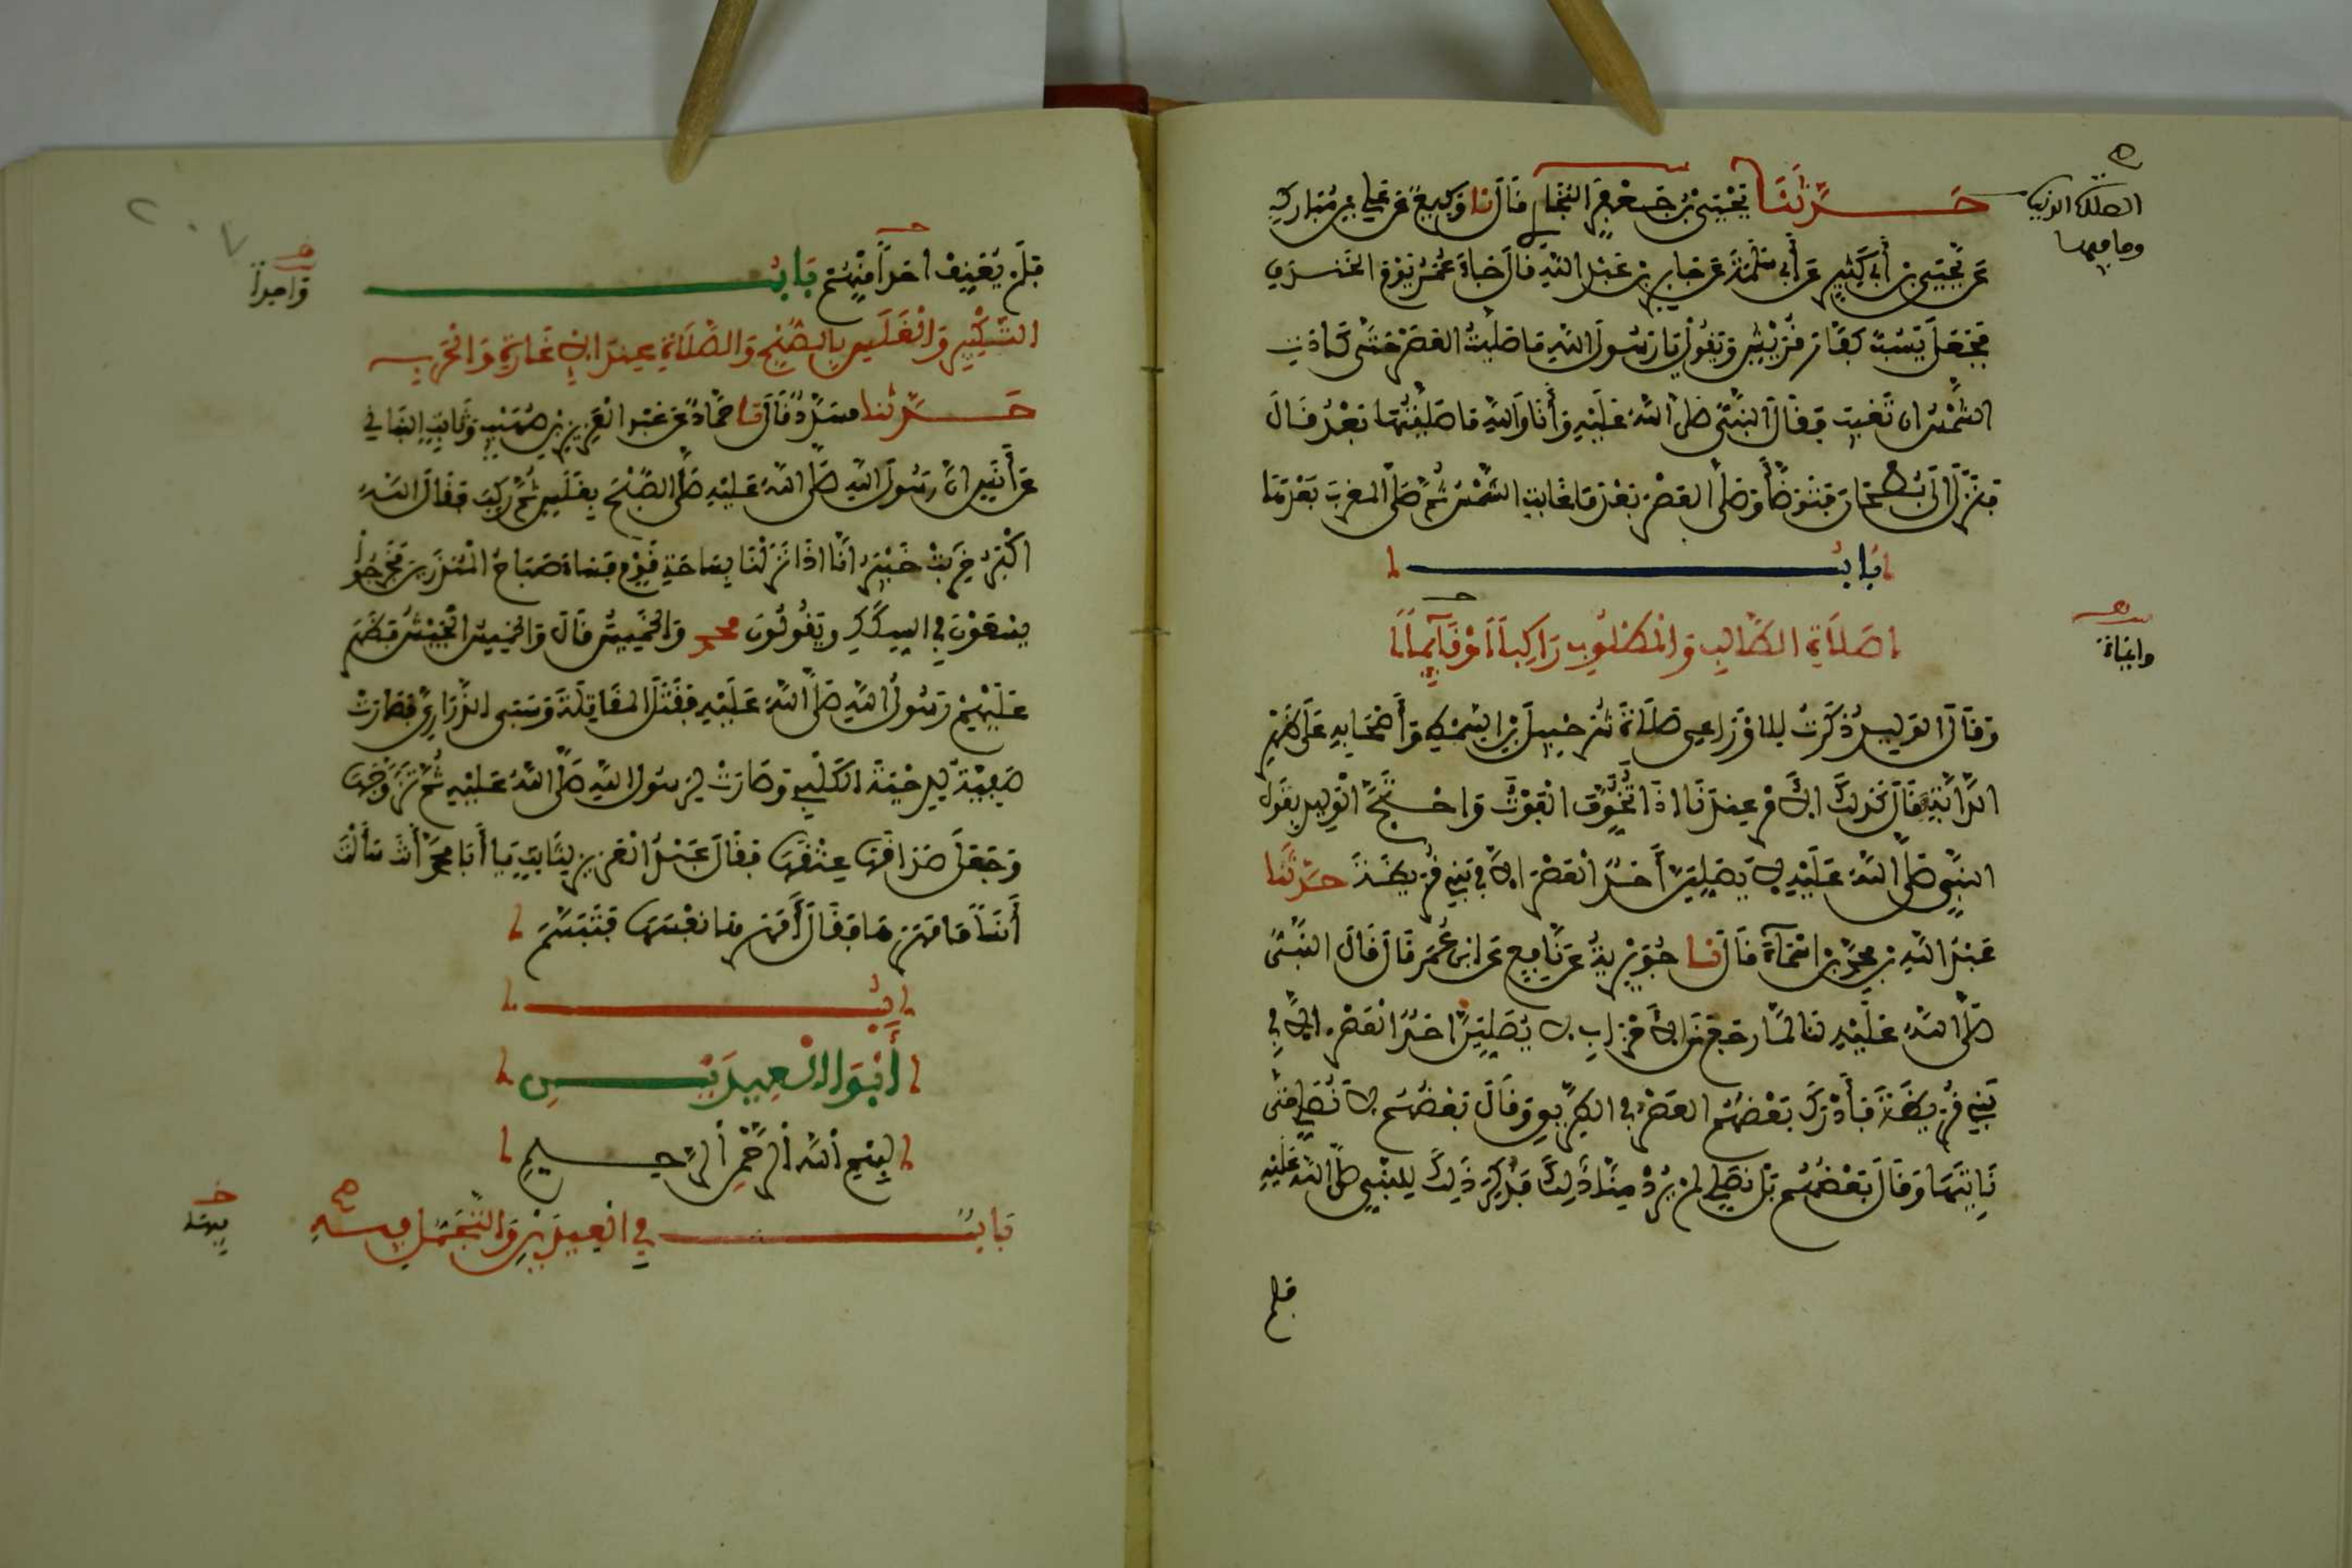 حدثنا يحيى بن جعفر البخاري قال نا وكيع عن علي بن مبارك
عن يحيى بن أبي كثير عن أبي سلمة عن جابر بن عبد الله قال جاء عمر يوم الخندق
فجعل يسب كفار قريش ويقول يا رسول الله ما صليت العصر حتى كادت
الشمس ان تغيب فقال النبي صلى الله عليه وأنا والله ما صليتها بعد قال
فنزل الى بطحان فتوضأ وصلى العصر بعدما غابت الشمس ثم صلى المغرب بعدها
باب
صلاة الطالب والمطلوب راكبا أو قائما
وقال الوليد ذكرت للاوزاعي صلاة شرحبيل بن السمط وأصحابه على ظهر
الدابة فقال كذلك الأمر عندنا اذا تخوف الفوت واحتج الوليد بقول
النبي صلى الله عليه لا يصلين أحد العصر الا في بني قريظة حدثنا
عبد الله بن محمد بن اسماء قال نا جويرية عن نافع عن ابن عمر قال قال النبي
صلى الله عليه لنا لما رجع من الأحزاب لا يصلين احد العصر الا في
بني قريظة فأدرك بعضهم العصر في الطريق وقال بعضهم لا نصلي حتى
نأتيها وقال بعضهم بل نصلي لم يرد منا ذلك فذكر ذلك للنبي صلى الله عليه
فلم
وإيماء
فلم يعنف احدا منهم باب
واحدا
التكبير والغلس بالصبح والصلاة عند الاغارة والحرب
حدثنا مسدد قال نا حماد عن عبد العزيز بن صهيب وثابت البناني
عن أنس ان رسول الله صلى الله عليه صلى الصبح بغلس ثم ركب فقال الله
اكبر خربت خيبر انا اذا نزلنا بساحة قوم فساء صباح المنذرين فخرجوا
يسعون في السكك ويقولون محمد والخميس قال والخميس الجيش فظهر
عليهم رسول الله صلى الله عليه فقتل المقاتلة وسبى الذراري فصارت
صفية لدحية الكلبي وصارت لرسول الله صلى الله عليه ثم تزوجها
وجعل صداقها عتقها فقال عبد العزيز لثابت يا أبا محمد أأنت سألت
أنسا ما مهرها فقال أمهرها نفسها فتبسم
أبواب العيدين
بسم الله الرحمن الرحيم
باب في العيدين والتجمل فيه